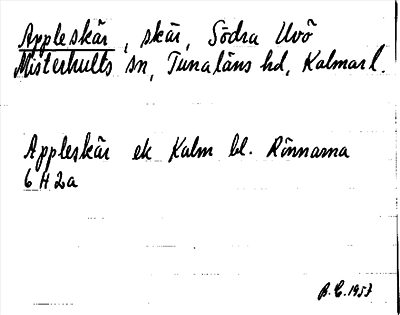 Appleskär, skär, Södra Uvö
Misterhults sn, Tunaläns hd, Kalmar l.
Appleskär ek Kalm bl. Rönnarna
6 H 2a
B.E. 1953